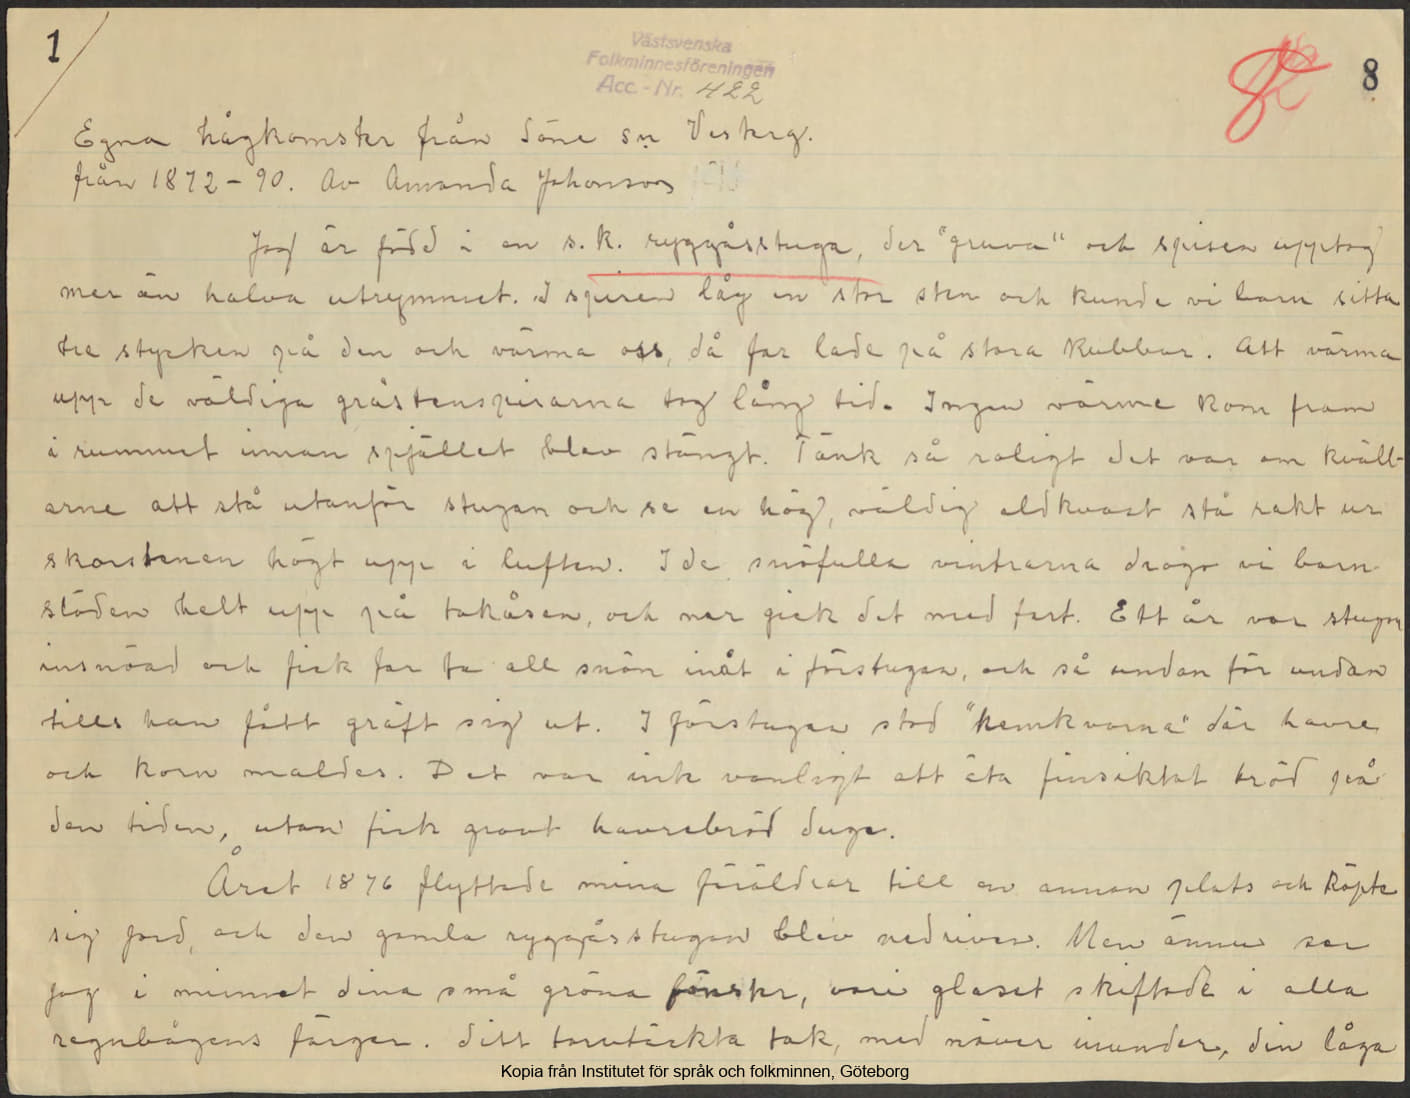 1
Västsvenska
Folkminnesföreningen
Acc.-Nr. 422
8
Egna hågkomster från Söne sn Vesterg.
från 1872-90. Av Amanda Johanson
Jag är född i en s.k. ryggåsstuga, der "gruva" och spisen upptog
mer än halva utrymmet. I spisen låg en stor sten och kunde vi barn sitta
tre stycken på den och värma oss, då far lade på stora kubbar. Att värma
upp de väldiga gråstensspisarna tog lång tid. Ingen värme kom fram
i rummet innan spjället blev stängt. Tänk så roligt det var om kväll-
arne att stå utanför stugan och se en hög, väldig eldkvast stå rakt ur
skorstenen högt upp i luften. I de snöfulla vintrarna drogo vi barn
släden helt upp på takåsen, och ner gick det med fart. Ett år var stugan
insnöad och fick far ta all snön inåt i förstugan, och så undan för undan
tills han fått gräft sig ut. I förstugan stod "hemkvarna" där havre
och korn maldes. Det var inte vanligt att äta finsiktat bröd på
den tiden, utan fick grovt havrebröd duga.
Året 1876 flyttade mina föräldrar till en annan plats och köpte
sig jord, och den gamla ryggåsstugan blev nedriven. Men ännu ser
jag i minnet dina små gröna fönster, vari glaset skiftade i alla
regnbågens färger. Ditt torvtäckta tak, med näver inunder, din låga
Kopia från Institutet för språk och folkminnen, Göteborg